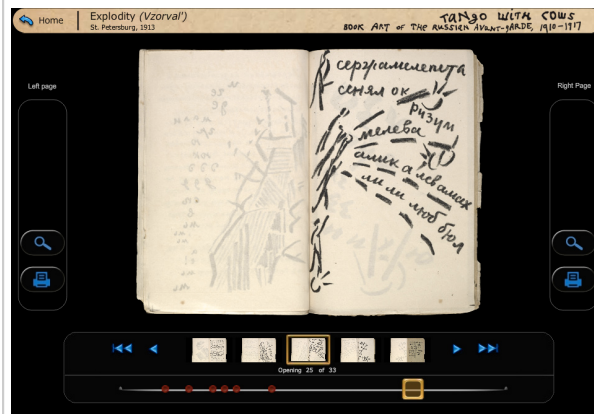 Home
Explodity (Vzorval')
St. Petersburg, 1913
TANGO WITH COWS
BOOK ART OF THE RUSSIAN AVANT-GARDE, 1910-1917
Left page
Right Page
сержамелепета
сенял ок
ризум
мелева
алик а левамах
ли ли люб бюл
Opening 25 of 33